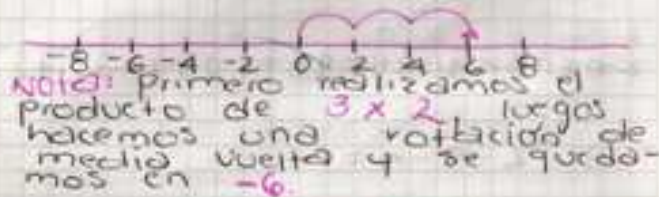 -8 -6 -4 -2 0 2 4 6 8
Nota: Primero realizamos el
producto de 3 x 2, luegos
hacemos una rotación de
media vuelta y se queda-
mos en -6.